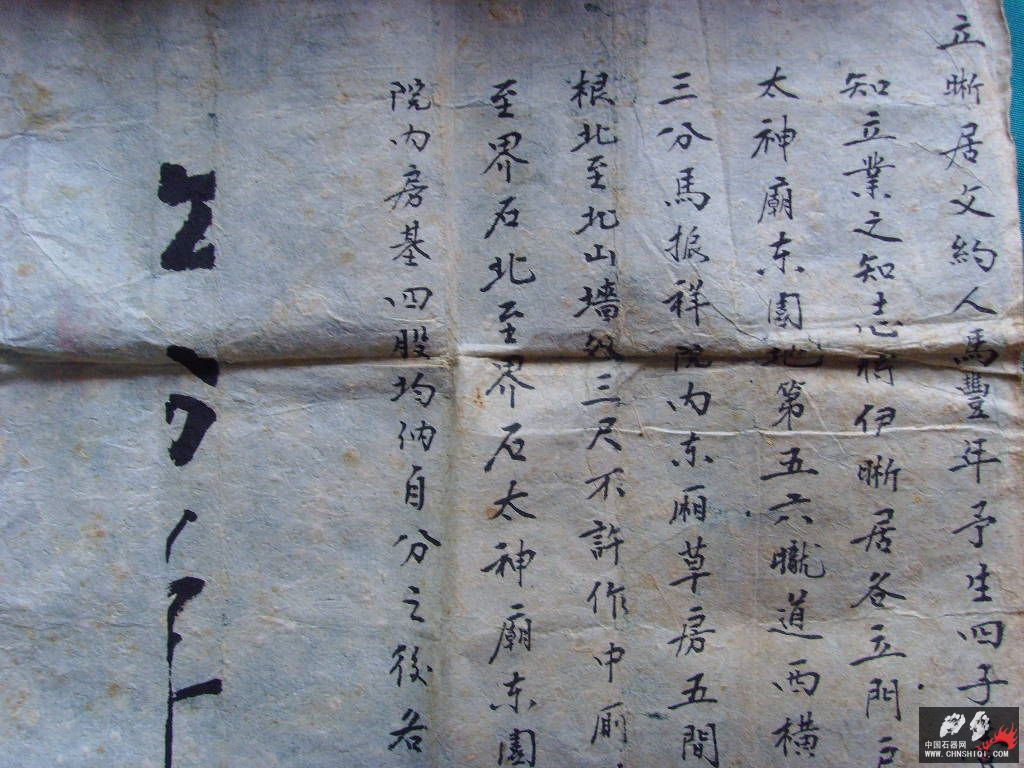 立晰居文約人馬豐年予生四子
知立業之知志將伊晰居各立門戶
太神廟东園地第五六朧道西橫
三分馬振祥院內东廂草房五間
根北至北山墻外三尺不許作中厠
至界石北至界石太神廟东園
院內房基四股均納自分之後各
中国石器网
WWW.CHNSHIQI.COM